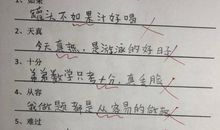 1、如果
罐头不如果汁好喝
2、天真
今天真热，是游泳的好日子
3、十分
弟弟数学只考十分，真丢脸
4、从容
我做题都是从容易的做起
5、难过